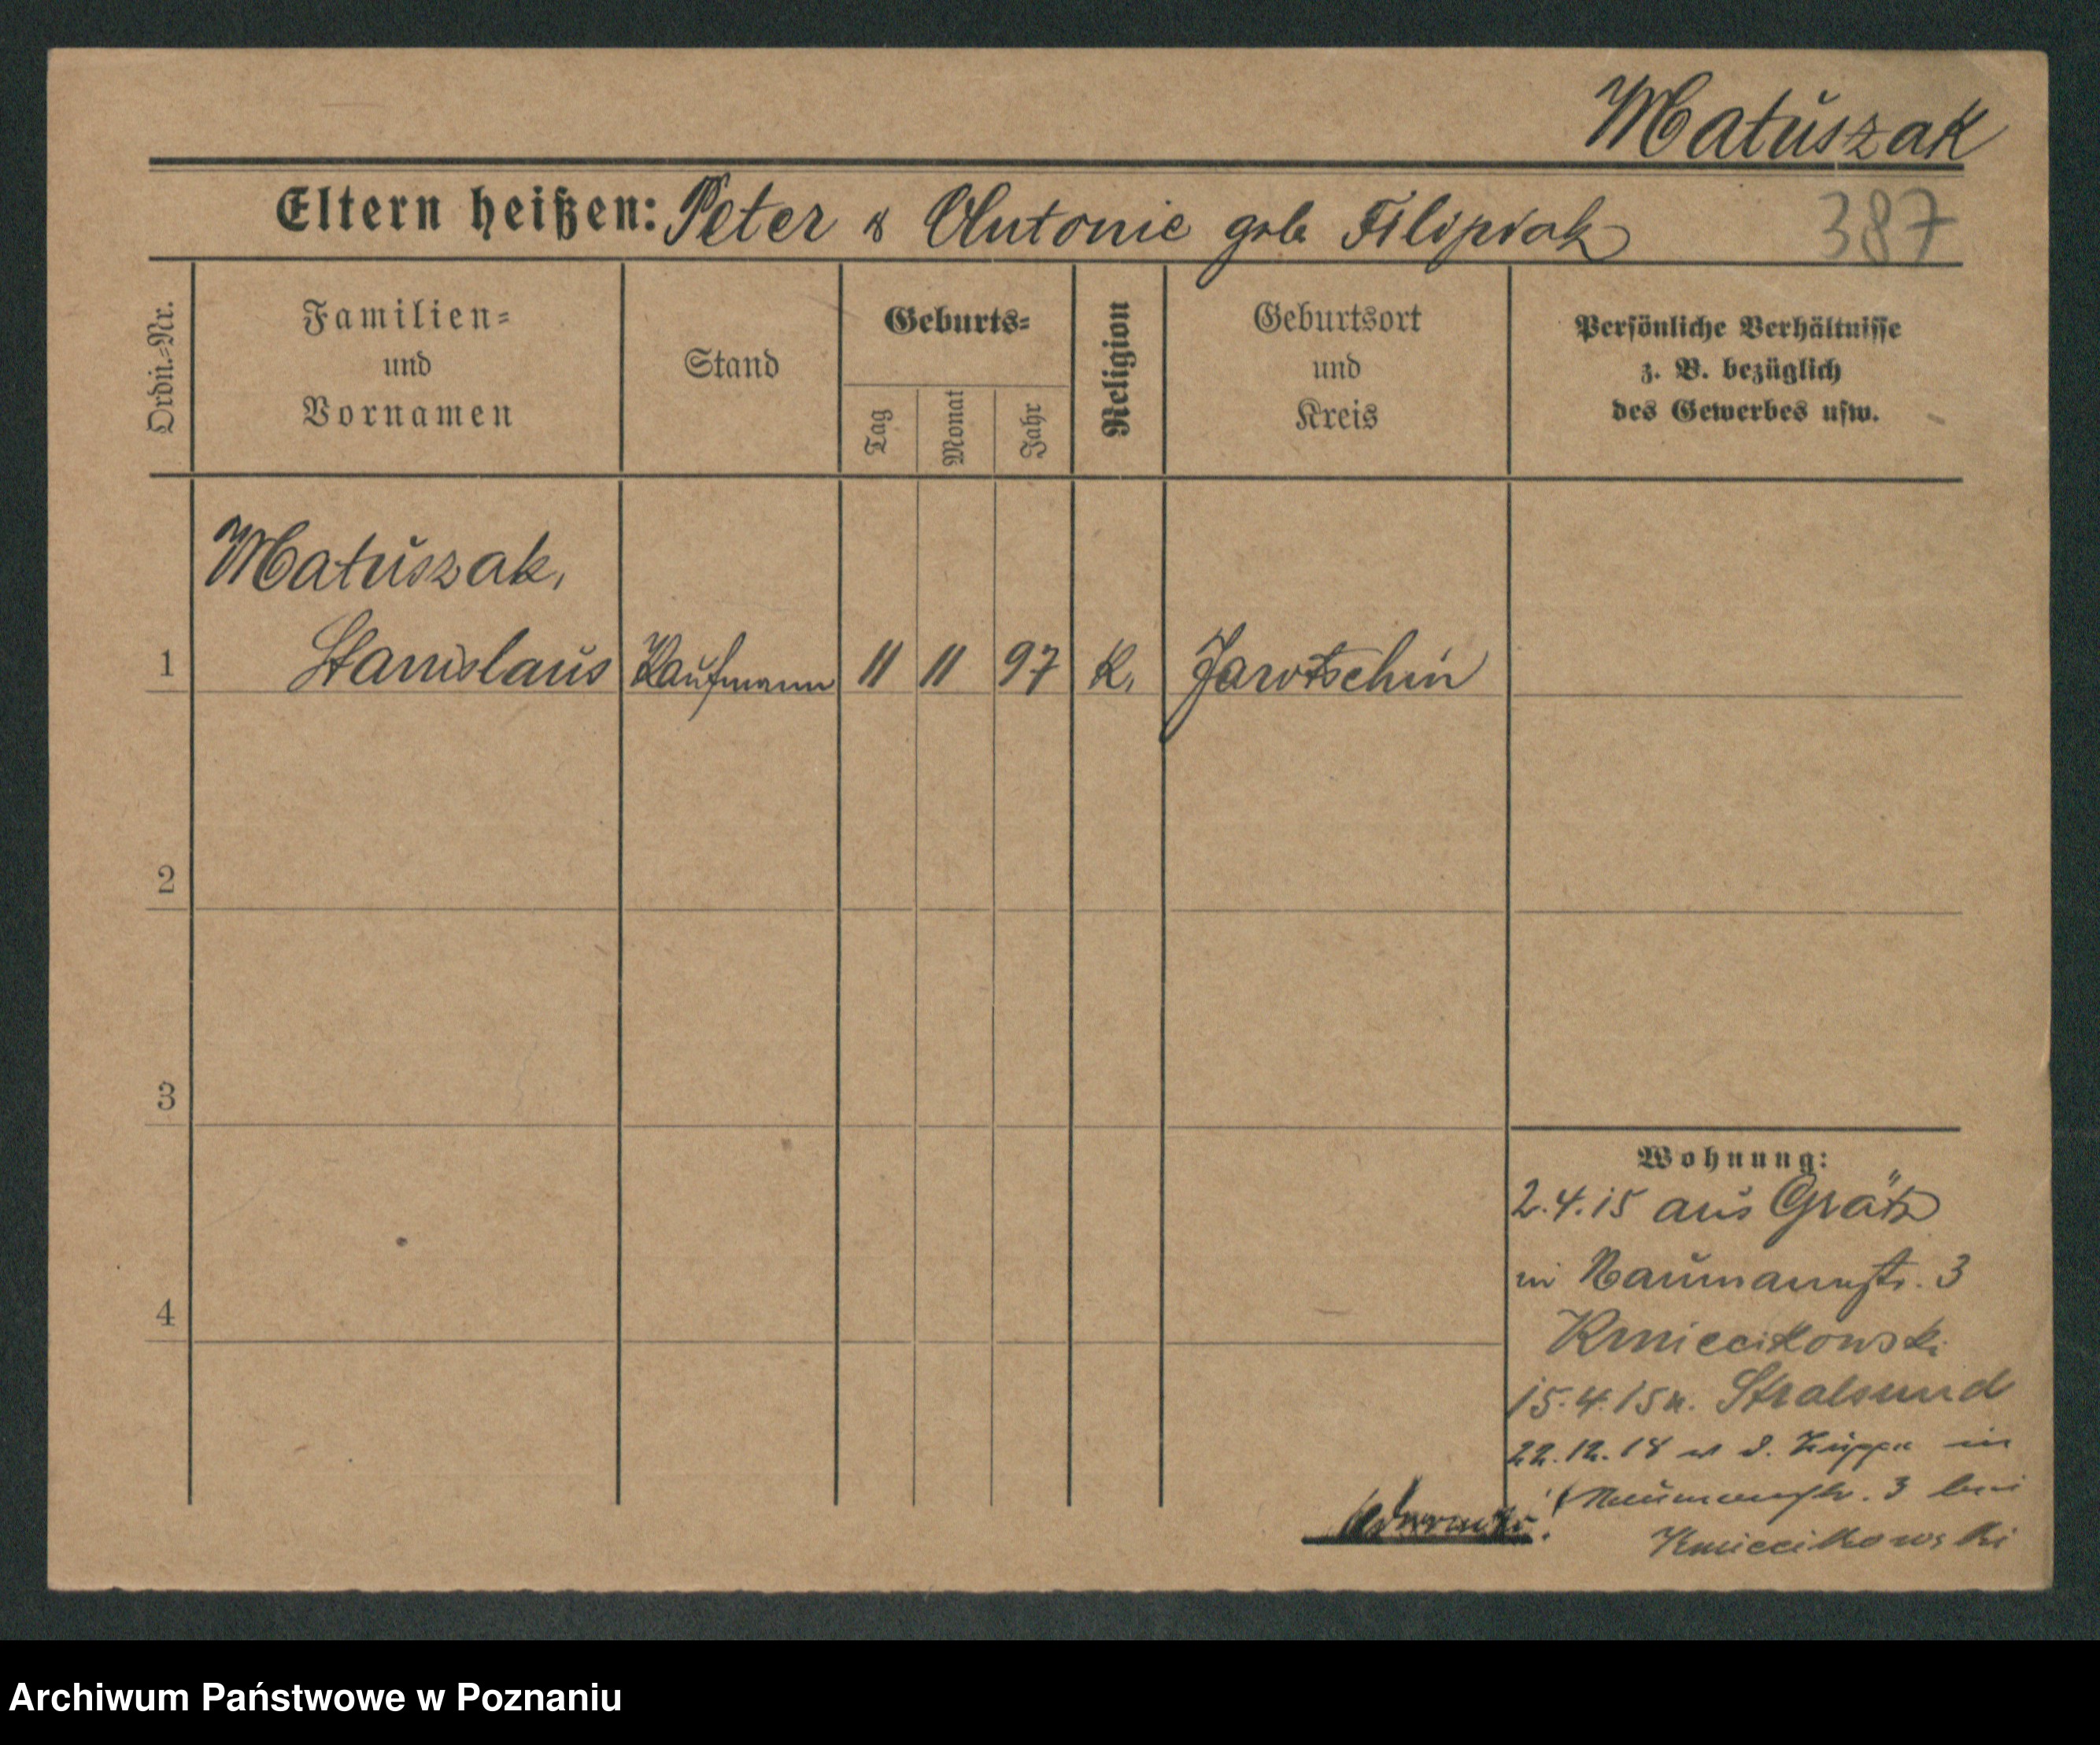 Matuszak
Eltern heißen: Peter & Antonie geb Filipiak 387
Ordn.-Nr.
Familien-
und
Vornamen
Stand
Geburts-
Tag
Monat
Jahr
Religion
Geburtsort
und
Kreis
Persönliche Verhältnisse
z. B. bezüglich
des Gewerbes usw.
Matuszak,
1 Stanislaus Kaufmann 11 11 97 K. Jarotschin
2
3
4
Wohnung:
2.4.15 aus Grätz
in Naumannstr. 3
Kmiecikowski
15.4.15 n. Stralsund
22.12.18 v. d. Truppe in
Naumannstr. 3 bei
Kmiecikowski
Archiwum Państwowe w Poznaniu